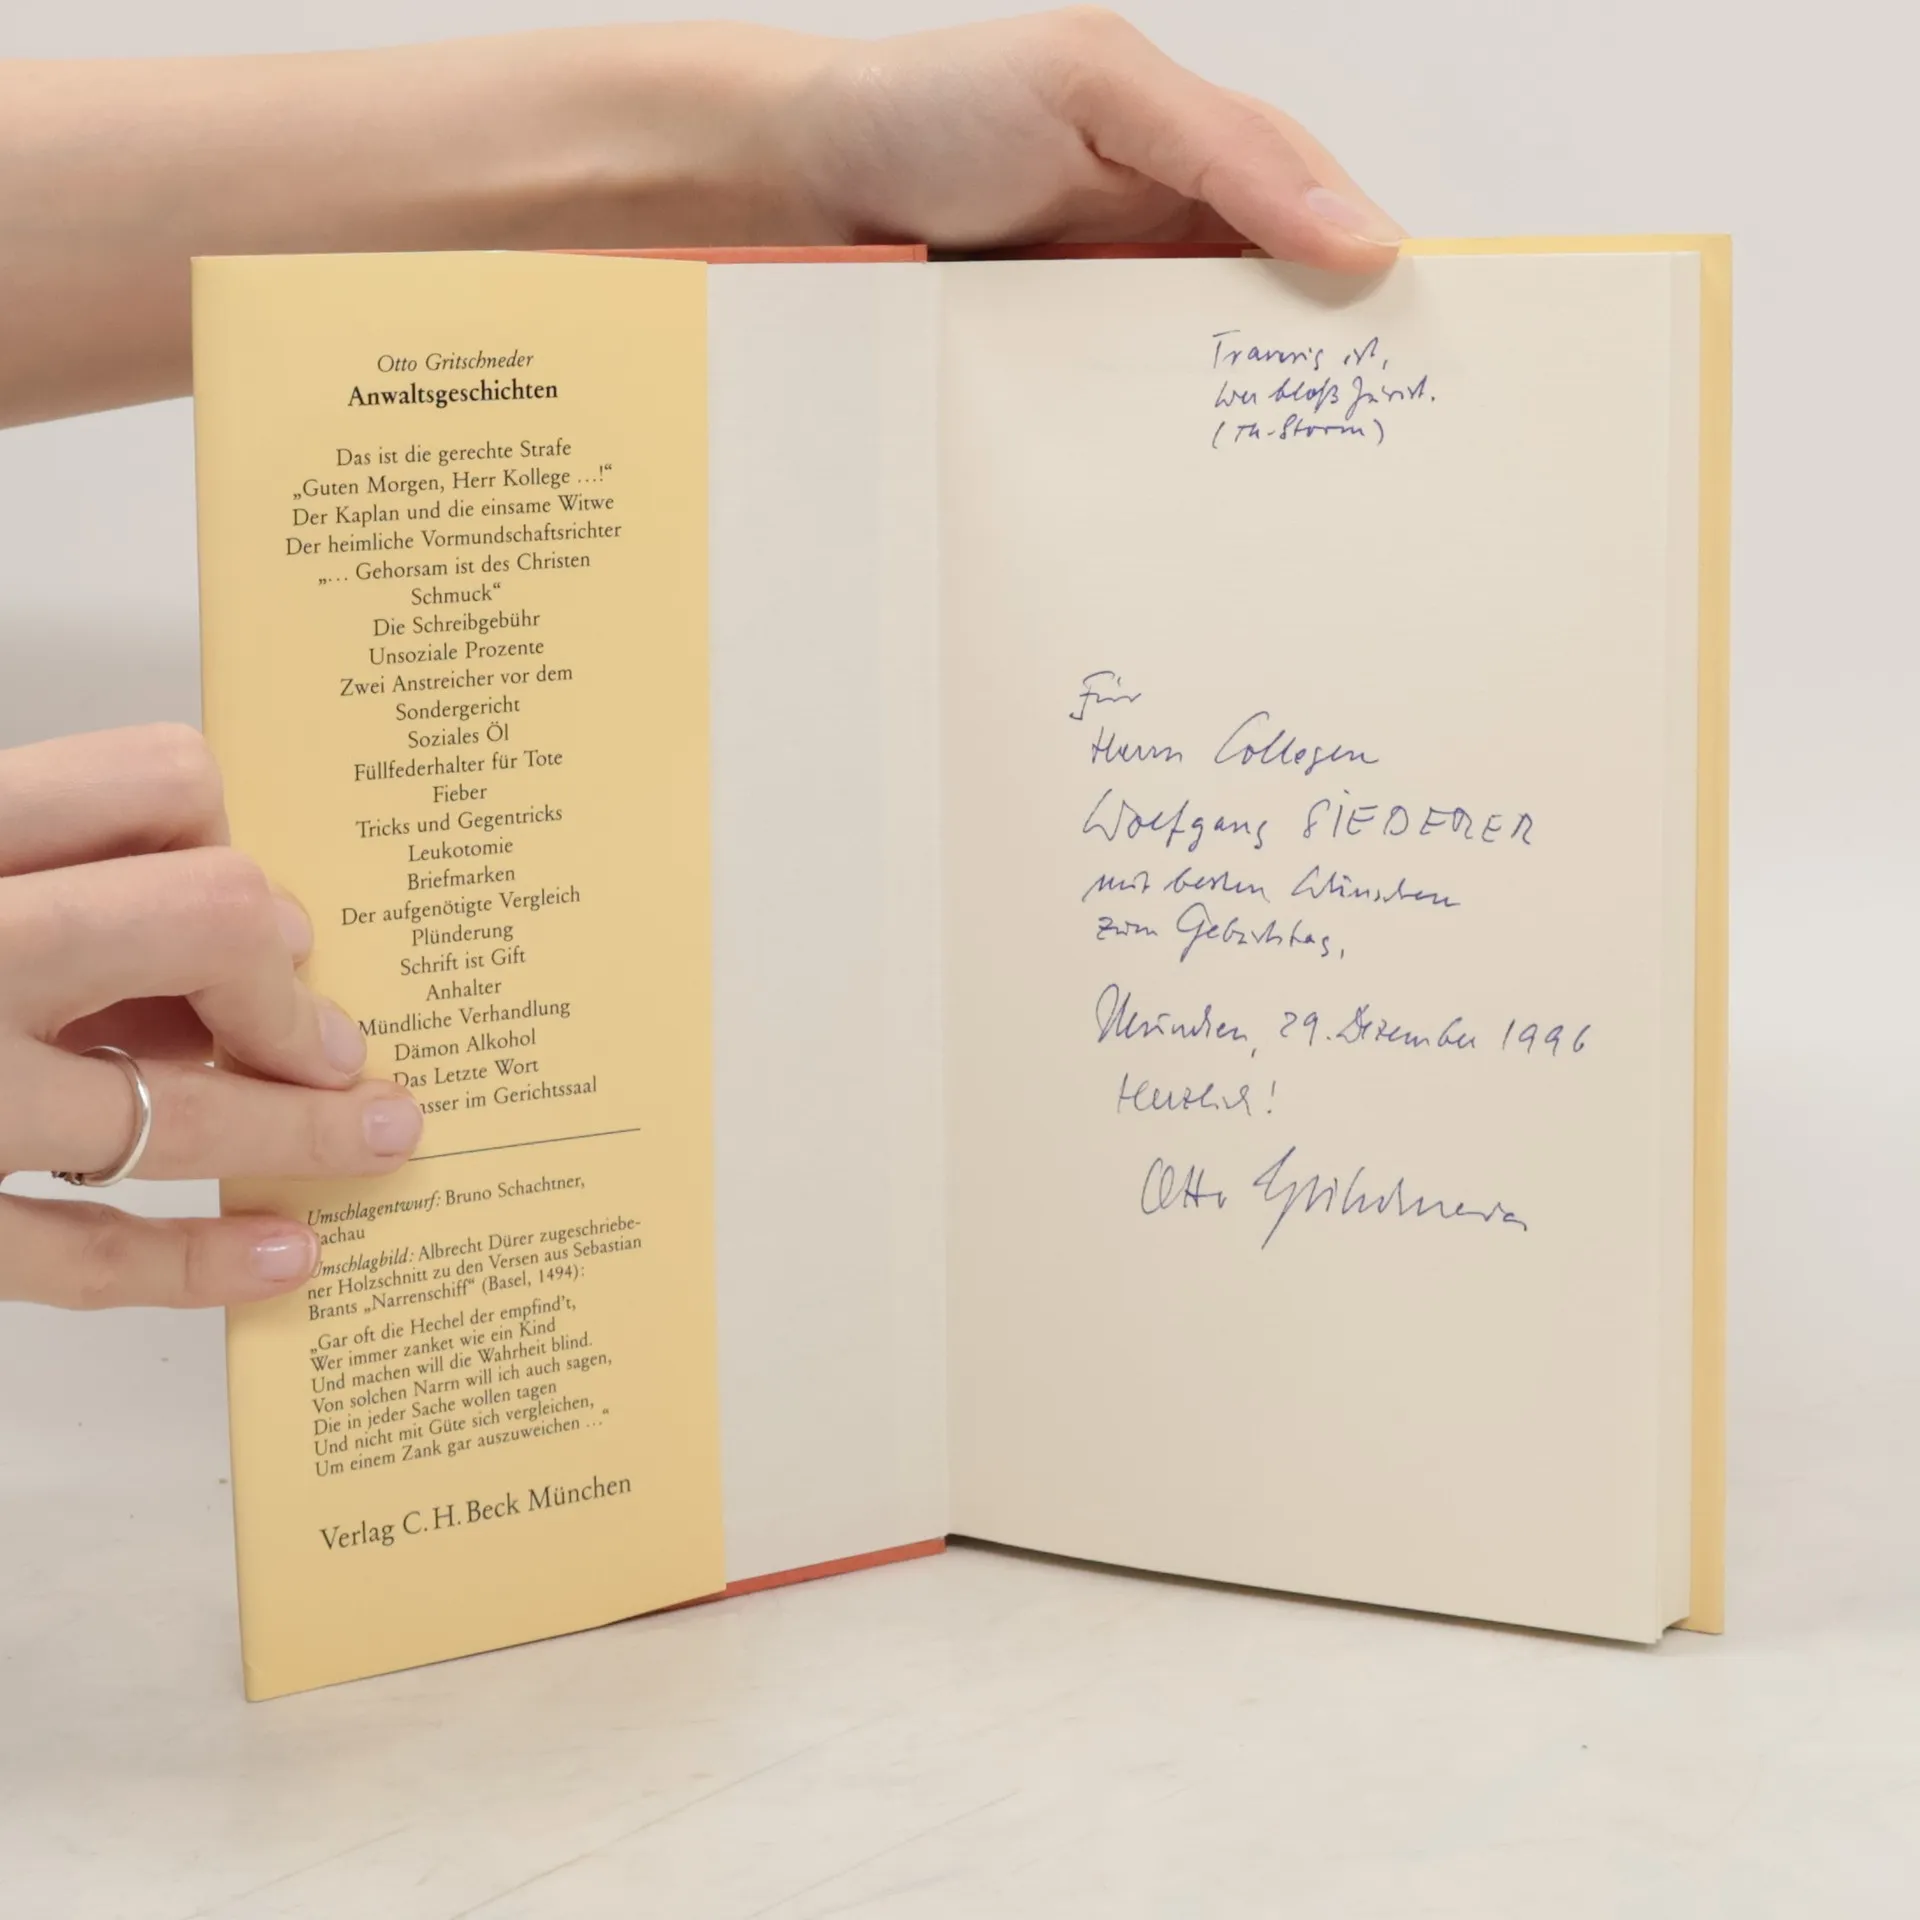 Otto Gritschneder
Anwaltsgeschichten
Das ist die gerechte Strafe
„Guten Morgen, Herr Kollege …!“
Der Kaplan und die einsame Witwe
Der heimliche Vormundschaftsrichter
„… Gehorsam ist des Christen
Schmuck“
Die Schreibgebühr
Unsoziale Prozente
Zwei Anstreicher vor dem
Sondergericht
Soziales Öl
Füllfederhalter für Tote
Fieber
Tricks und Gegentricks
Leukotomie
Briefmarken
Der aufgenötigte Vergleich
Plünderung
Schrift ist Gift
Anhalter
Mündliche Verhandlung
Dämon Alkohol
Das Letzte Wort
im Gerichtssaal
Umschlagentwurf: Bruno Schachtner,
achau
Umschlagbild: Albrecht Dürer zugeschriebe-
ner Holzschnitt zu den Versen aus Sebastian
Brants „Narrenschiff“ (Basel, 1494):
„Gar oft die Hechel der empfind’t,
Wer immer zanket wie ein Kind
Und machen will die Wahrheit blind.
Von solchen Narrn will ich auch sagen,
Die in jeder Sache wollen tagen
Und nicht mit Güte sich vergleichen,
Um einem Zank gar auszuweichen …“
Verlag C. H. Beck München
Traurig ist,
wer bloß Jurist.
(Th. Storm)
Für
Herrn Collegen
Wolfgang SIEDERER
mit besten Wünschen
zum Geburtstag,
München, 29. Dezember 1996
Herzlich!
Otto Gritschneder